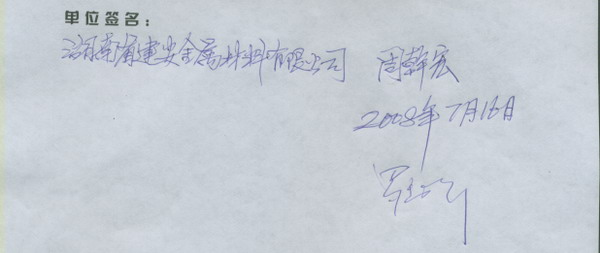 单位签名：
湖南省建安金属材料有限公司 周韩宏
2008年7月16日